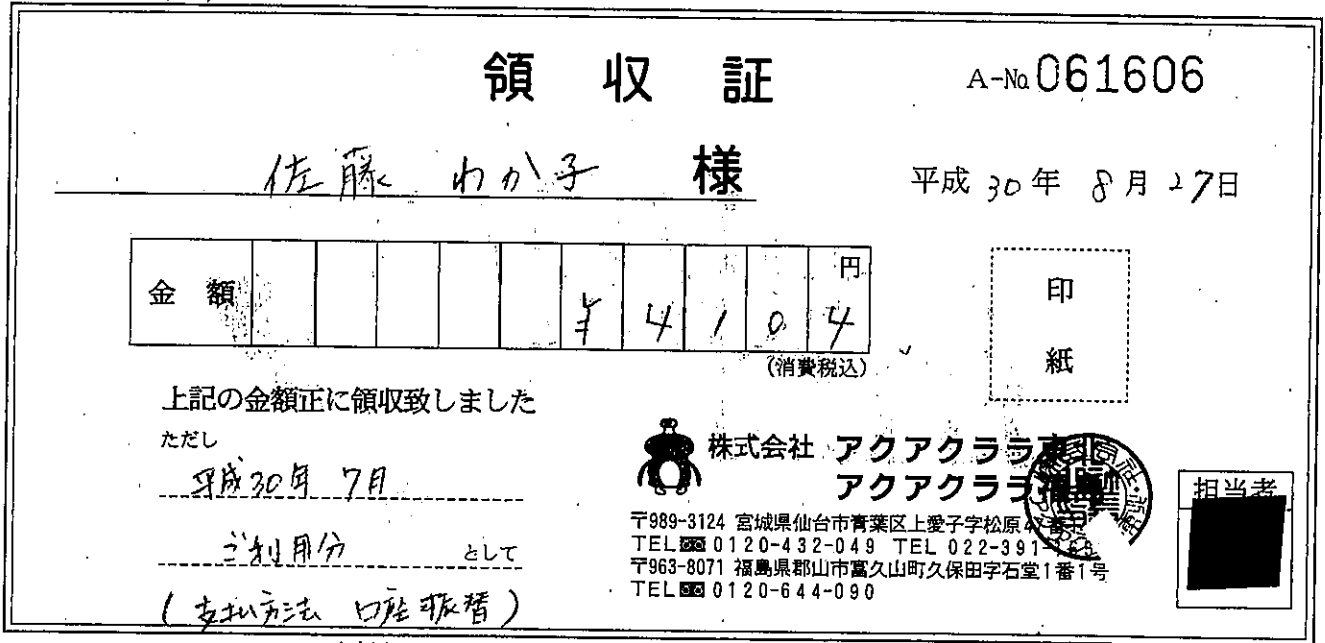 領収証
A-No.061606
佐藤 わか子 様
平成 30年 8月 27日
金額 ¥4104円
(消費税込)
印紙
上記の金額正に領収致しました
ただし
平成30年 7月
ご利用分 として
(支払方法 口座振替)
株式会社 アクアクララ東北
アクアクララ
〒989-3124 宮城県仙台市青葉区上愛子字松原
TEL 0120-432-049 TEL 022-391-
〒963-8071 福島県郡山市富久山町久保田字石堂1番1号
TEL 0120-644-090
担当者